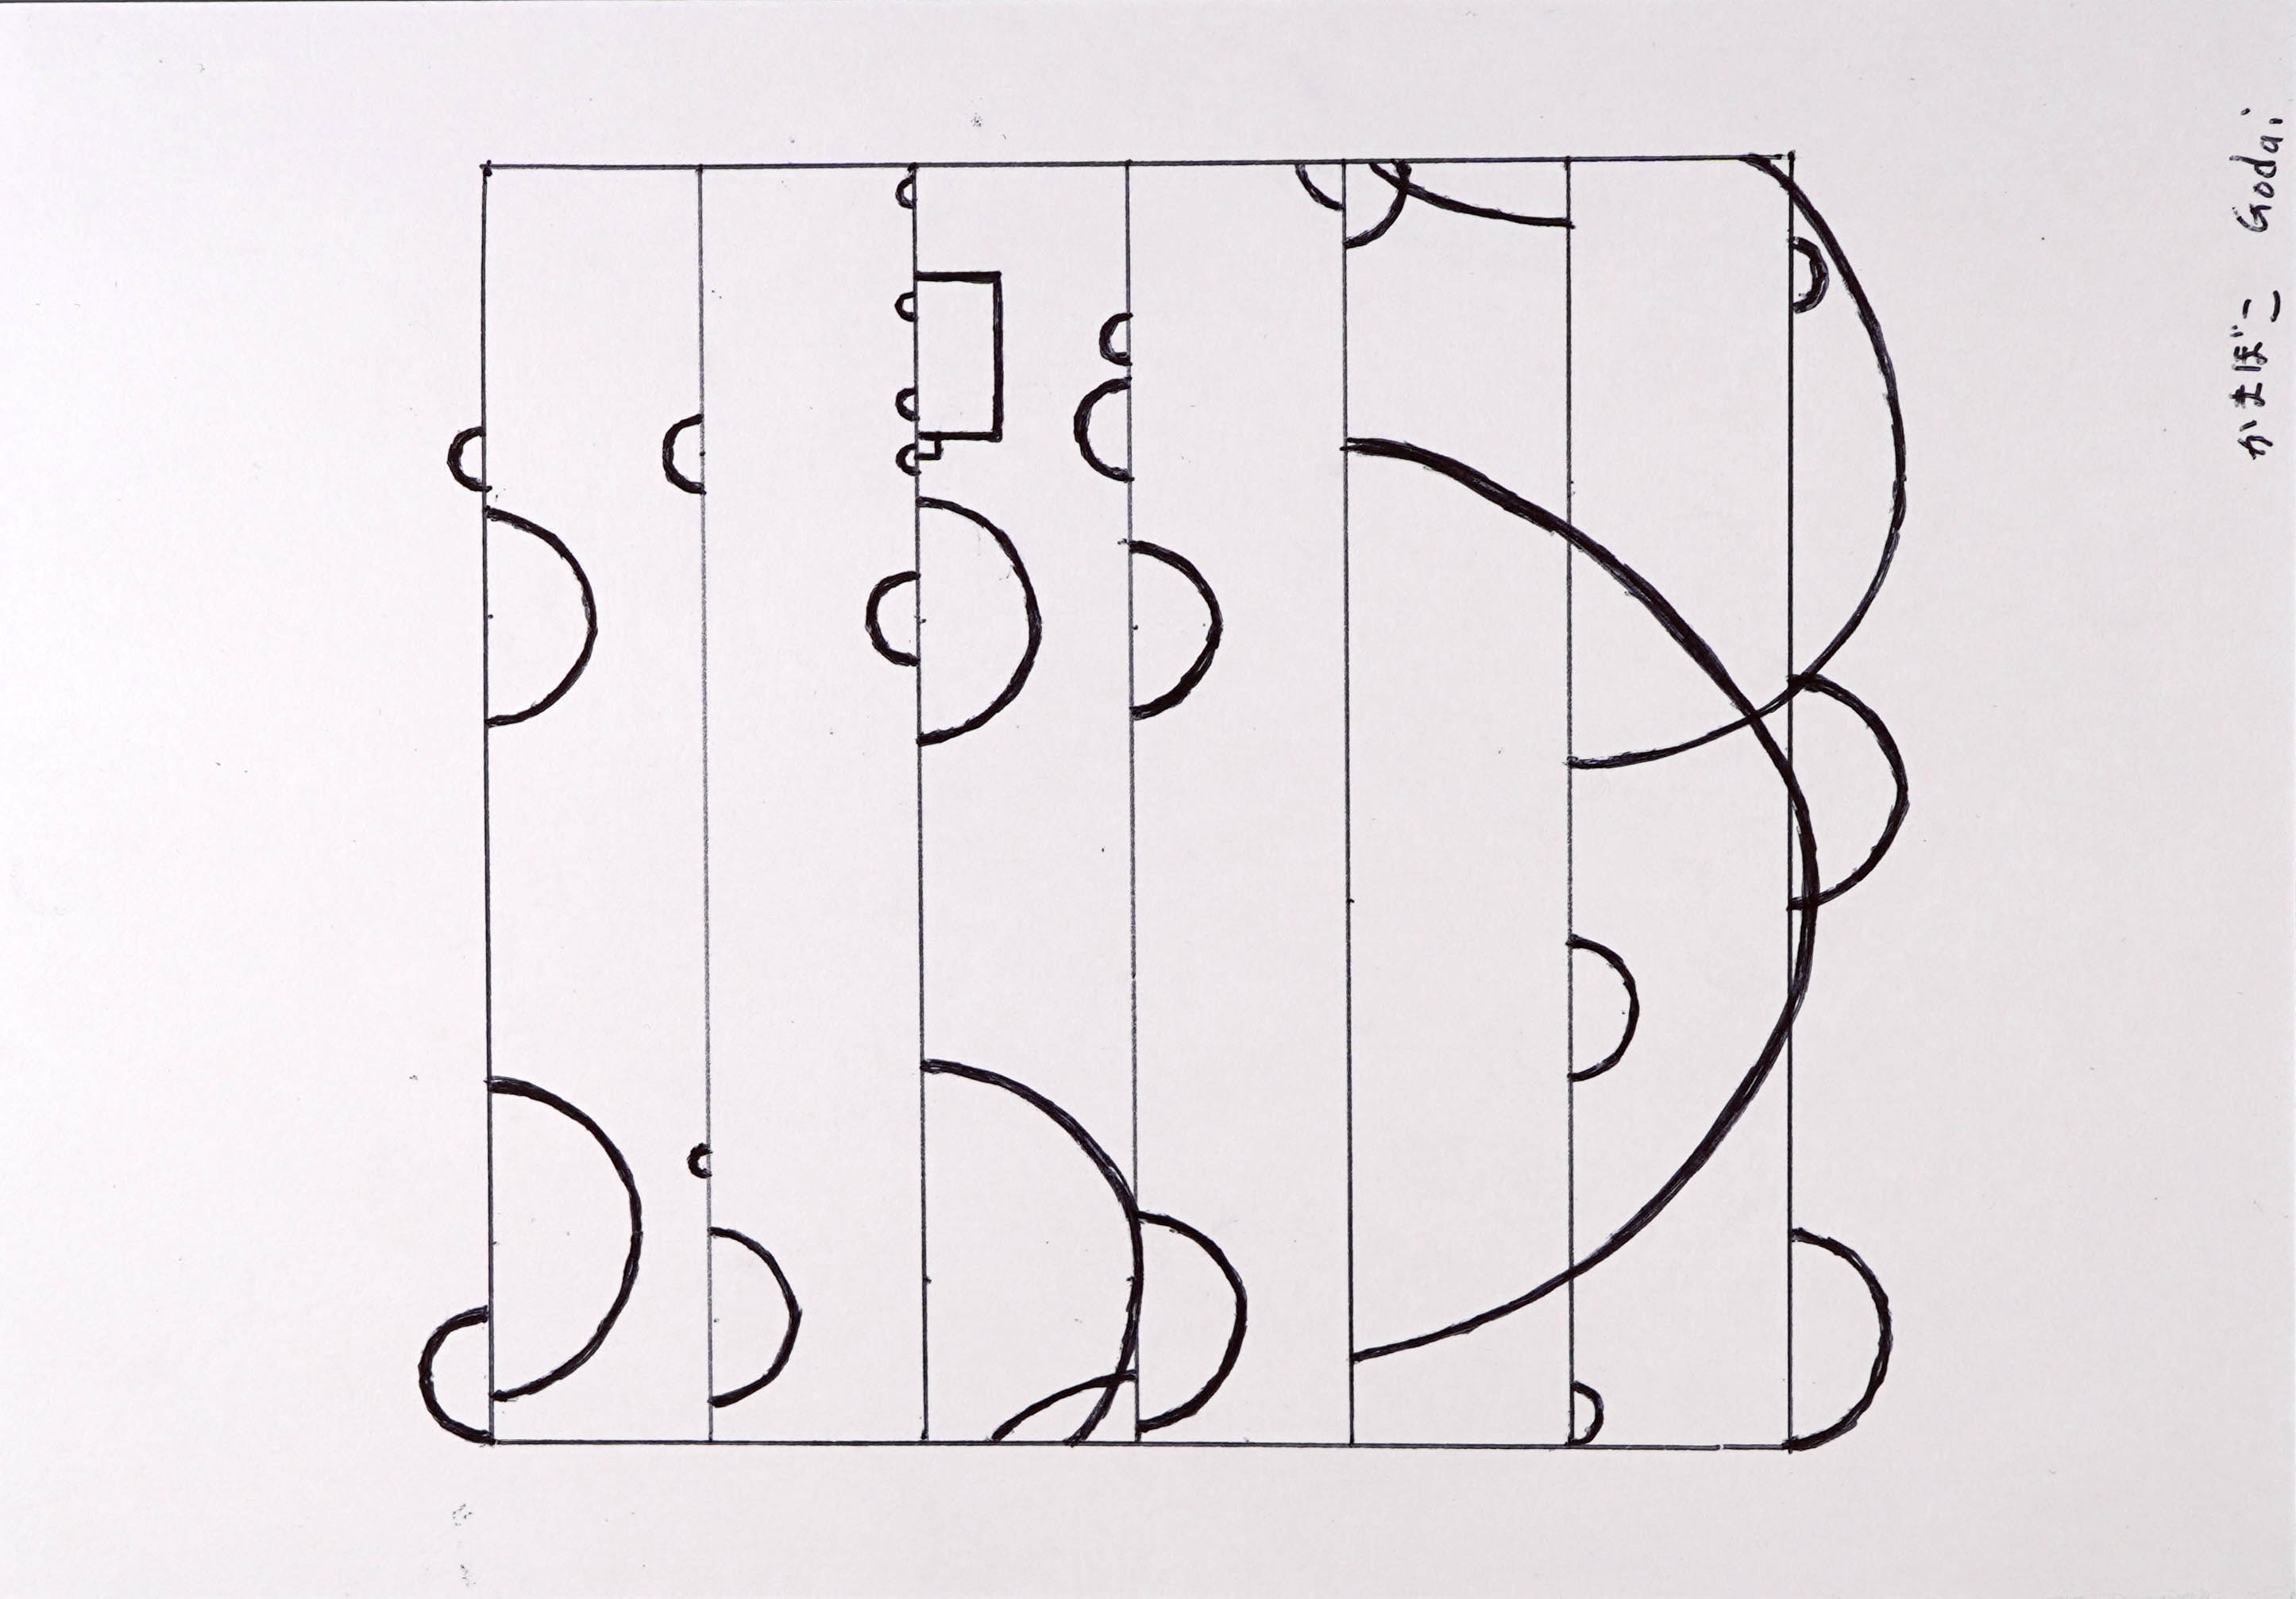 かまぼこ Godai